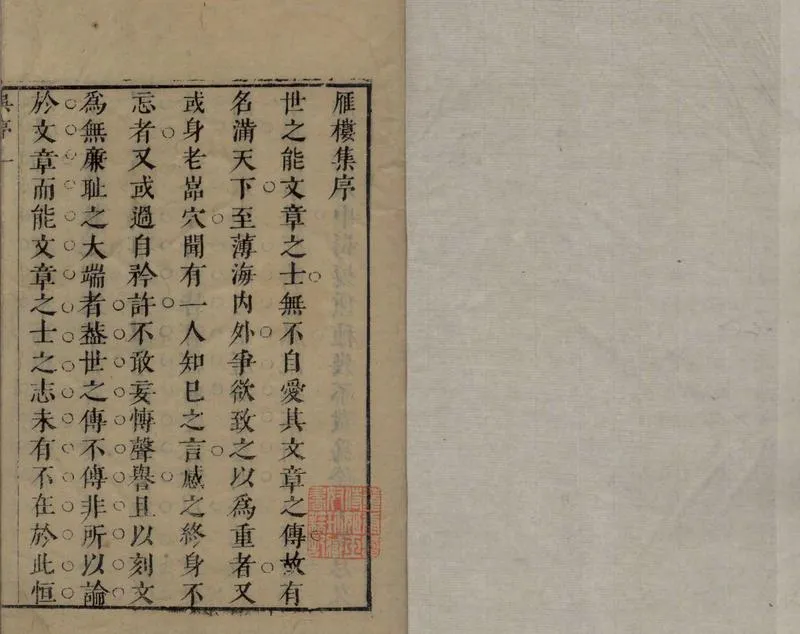 雁樓集序
世之能文章之士無不自愛其文章之傳故有
名滿天下至薄海内外爭欲致之以爲重者又
或身老嵓穴聞有一人知巳之言感之終身不
忘者又或過自矜許不敢妄慱聲譽且以刻文
爲無廉耻之大端者葢世之傳不傳非所以論
於文章而能文章之士之志未有不在於此恒
序一